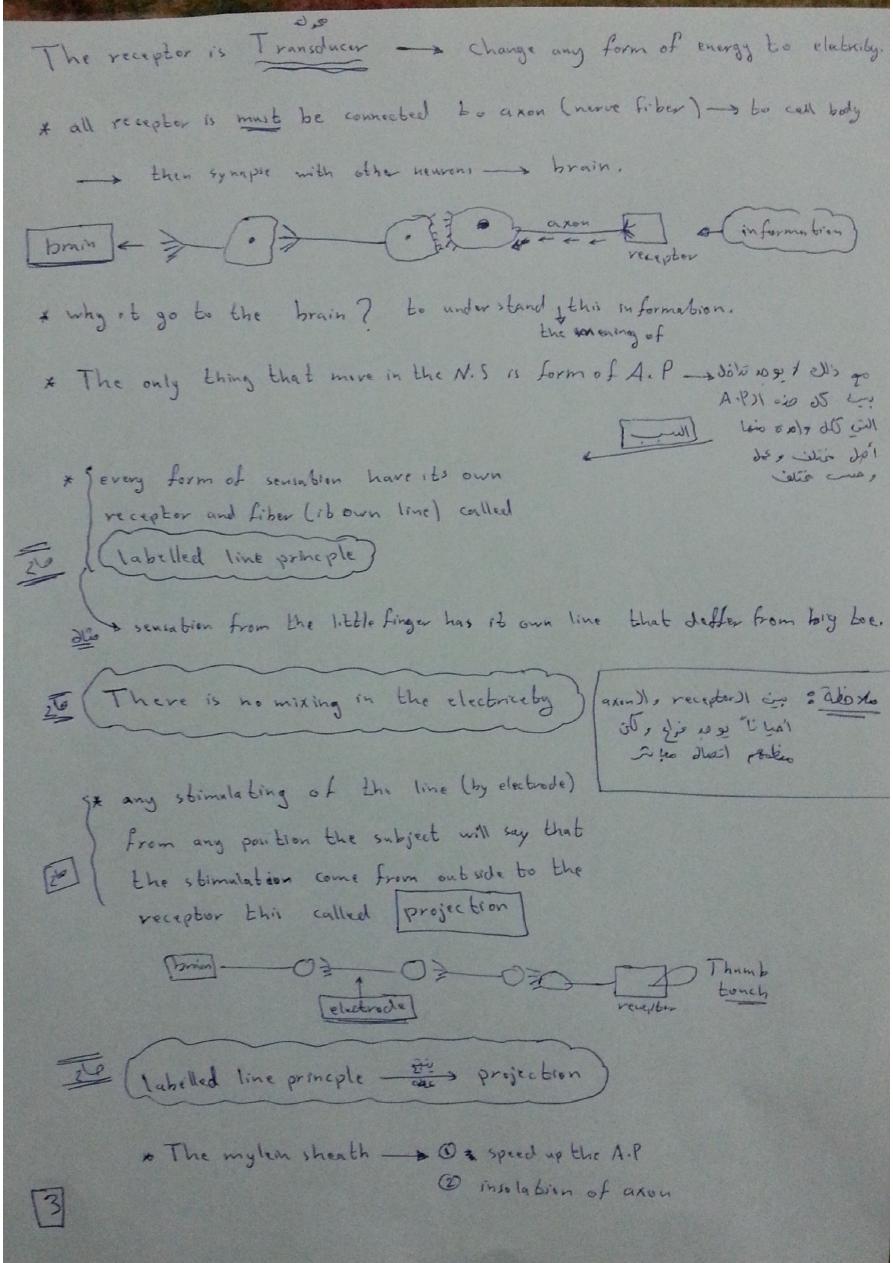 محول
The receptor is Transducer → change any form of energy to eletricity.
* all receptor is must be connected to axon (nerve fiber) → to cell body
→ then synapse with other neurons → brain.
brain ← axon receptor information
* why it go to the brain? to understand this information.
the meaning of
* The only thing that move in the N.S is form of A.P → مع ذلك لا يوجد تداخل
بين كل هذه الـ A.P
التي لكل واحدة منها
أصل مختلف وعمل
وحسب مختلف
السبب
* every form of sensation have its own
receptor and fiber (its own line) called
labelled line princple
هام
مثال → sensation from the little finger has it own line that deffer from big toe.
هام There is no mixing in the electricety
ملاحظة: بين الـ receptor والـ axon
أحياناً يوجد فراغ ولكن
معظمهم اتصال مباشر
* any stimulating of the line (by electrode)
from any position the subject will say that
the stimulation come from outside to the
receptor this called projection
هام
brain receptor Thumb
touch
electrode
هام labelled line princple → projection
ينتج عنه
* The mylein sheath → ① speed up the A.P
② insolation of axon
3